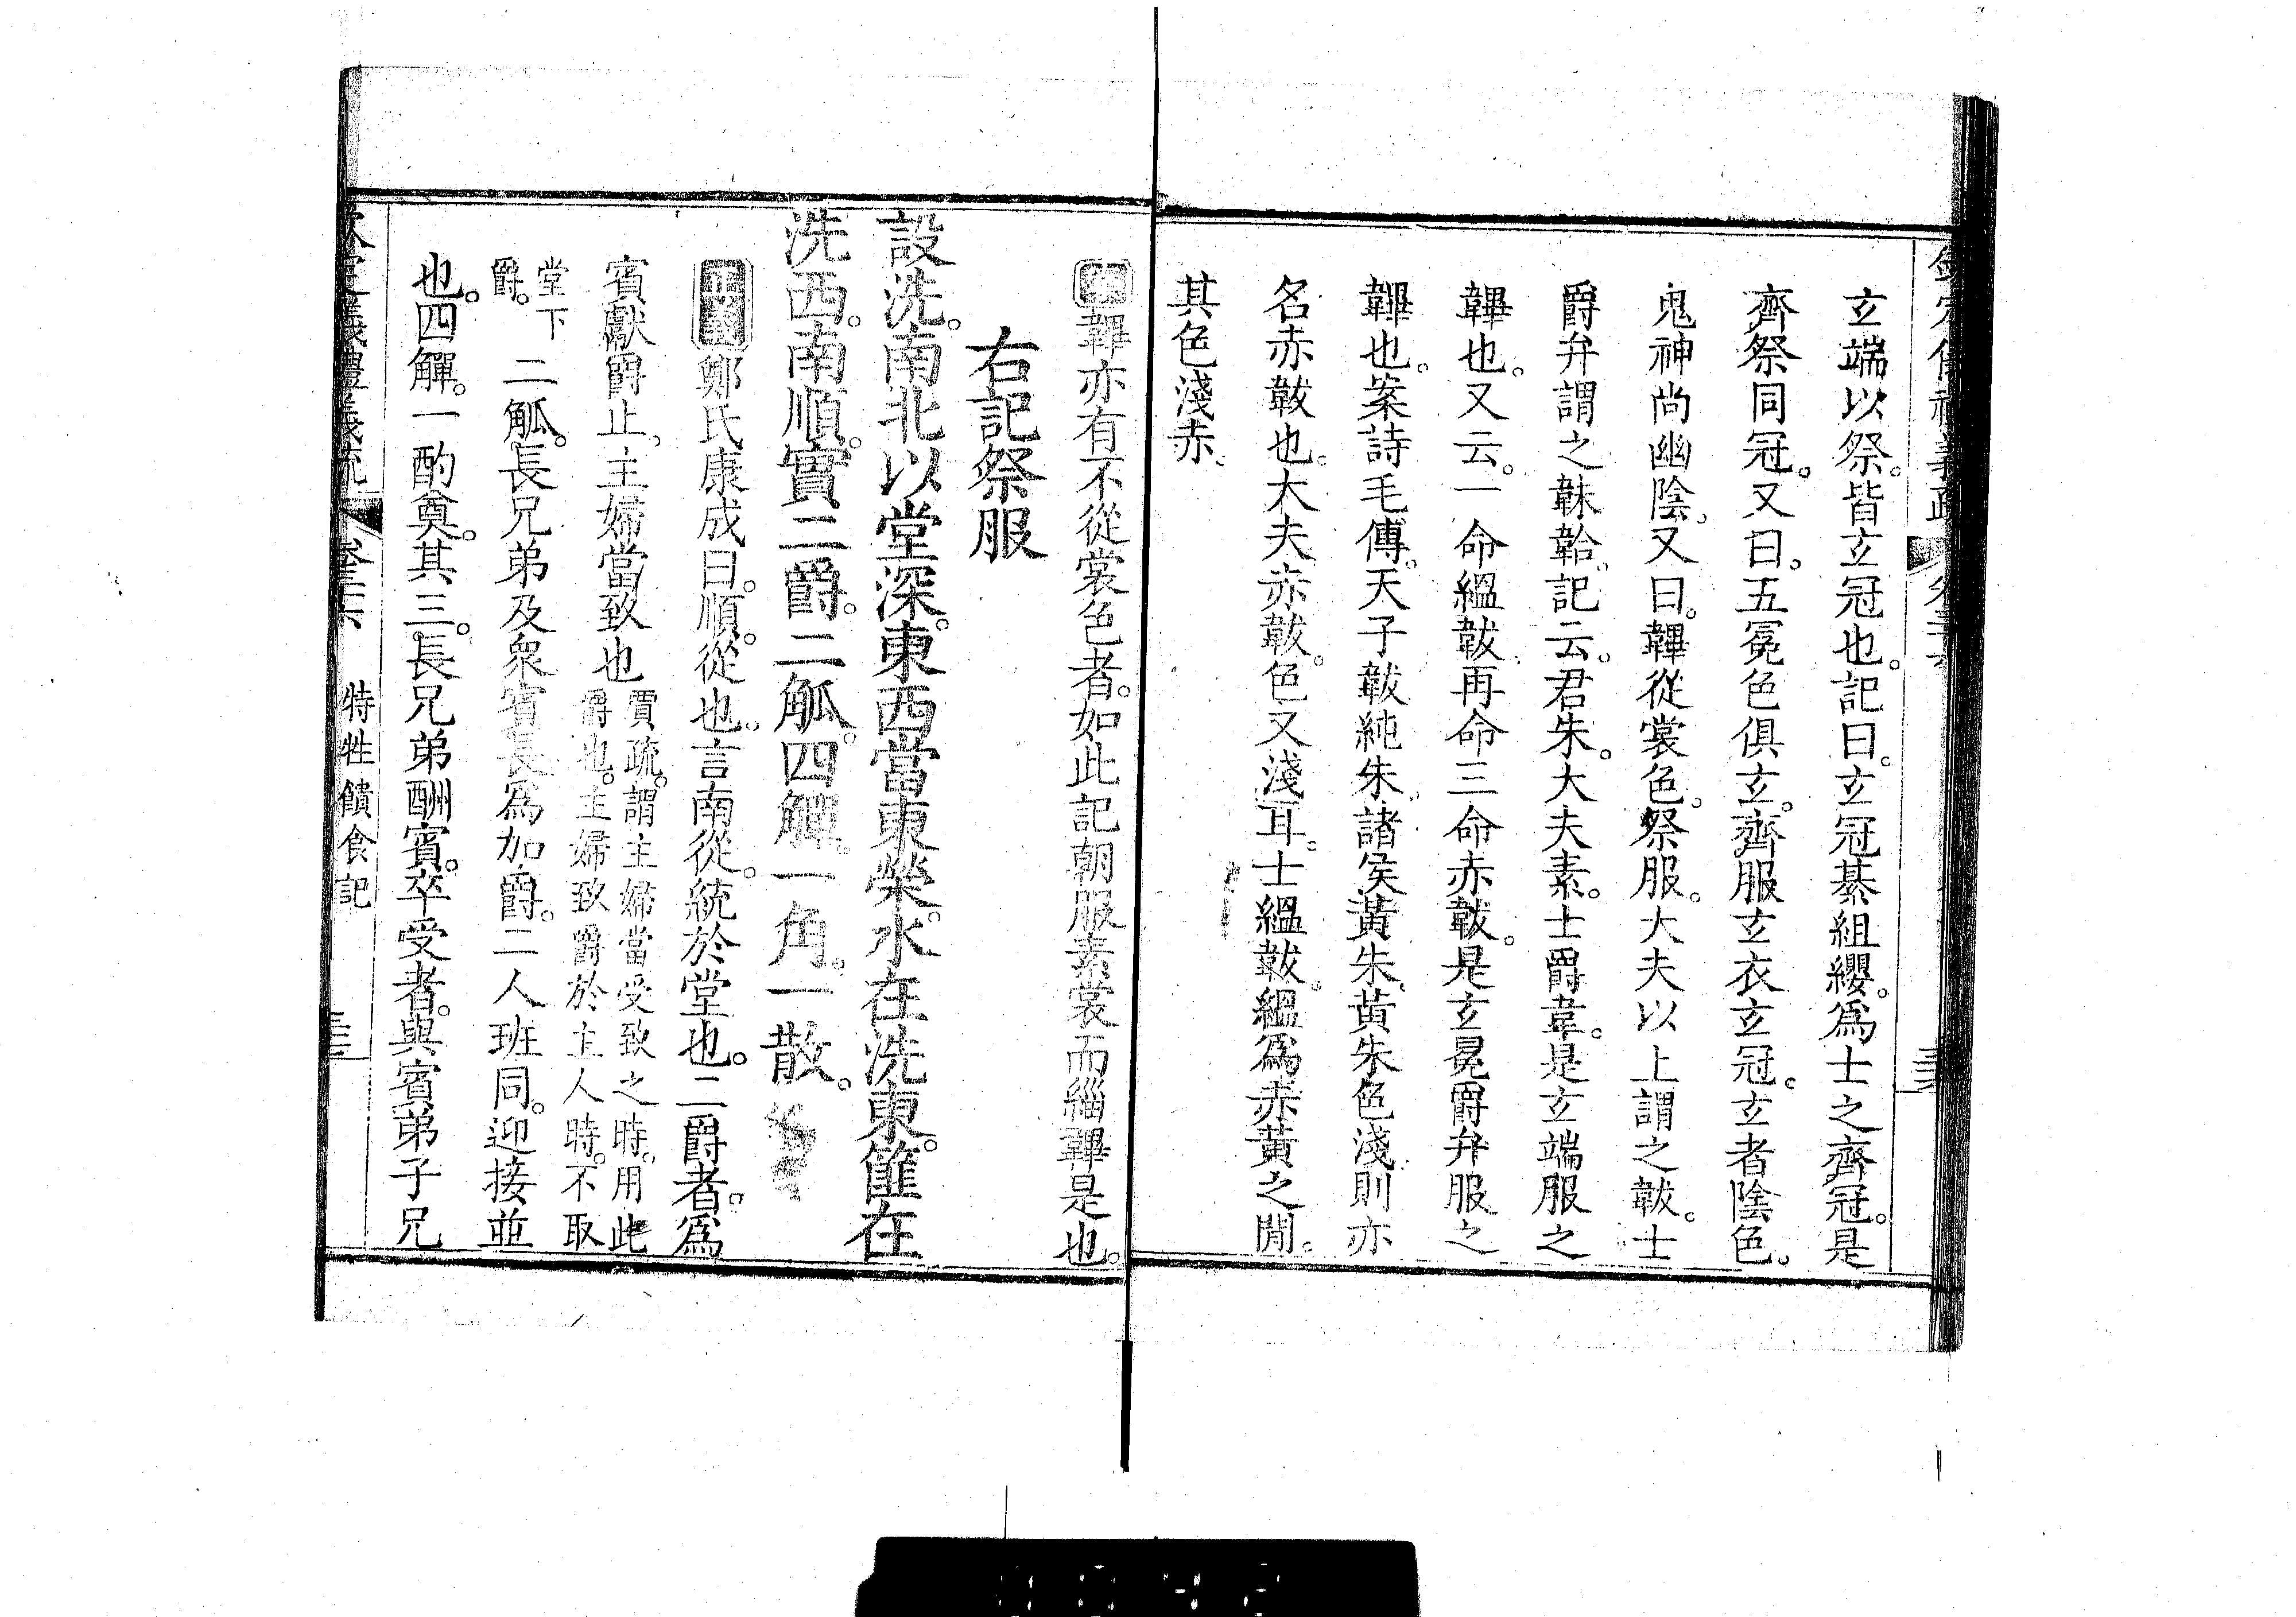 玄端以祭。皆玄冠也。記曰。玄冠綦組纓。爲士之齊冠。是
齊祭同冠。又曰。五冕色俱玄。齊服玄衣玄冠。玄者陰色。
鬼神尚幽陰。又曰。韠從裳色。祭服。大夫以上謂之韍。士
爵弁謂之韎韐。記云。君朱。大夫素。士爵韋。是玄端服之
韠也。又云。一命縕韍。再命三命赤韍。是玄冕爵弁服之
韠也。案詩毛傳。天子韍純朱。諸侯黃朱。黃朱色淺則亦
名赤韍也。大夫亦韍。色又淺耳。士縕韍。縕爲赤黃之閒。
其色淺赤。
韠亦有不從裳色者。如此記朝服素裳而緇韠是也。
右記祭服
設洗。南北以堂深。東西當東榮。水在洗東。篚在
洗西。南順。實二爵。二觚。四觶。一角。一散。
正義鄭氏康成曰。順。從也。言南從。統於堂也。二爵者。爲
賓獻爵止。主婦當致也賈疏。謂主婦當受致之時。用此
爵也。主婦致爵於主人時。不取
堂下
爵。二觚。長兄弟及衆賓長爲加爵。二人班同。迎接並
也。四觶。一酌奠。其三。長兄弟酬賓。卒受者。與賓弟子兄
欽定儀禮義疏 卷三十六 特牲饋食記